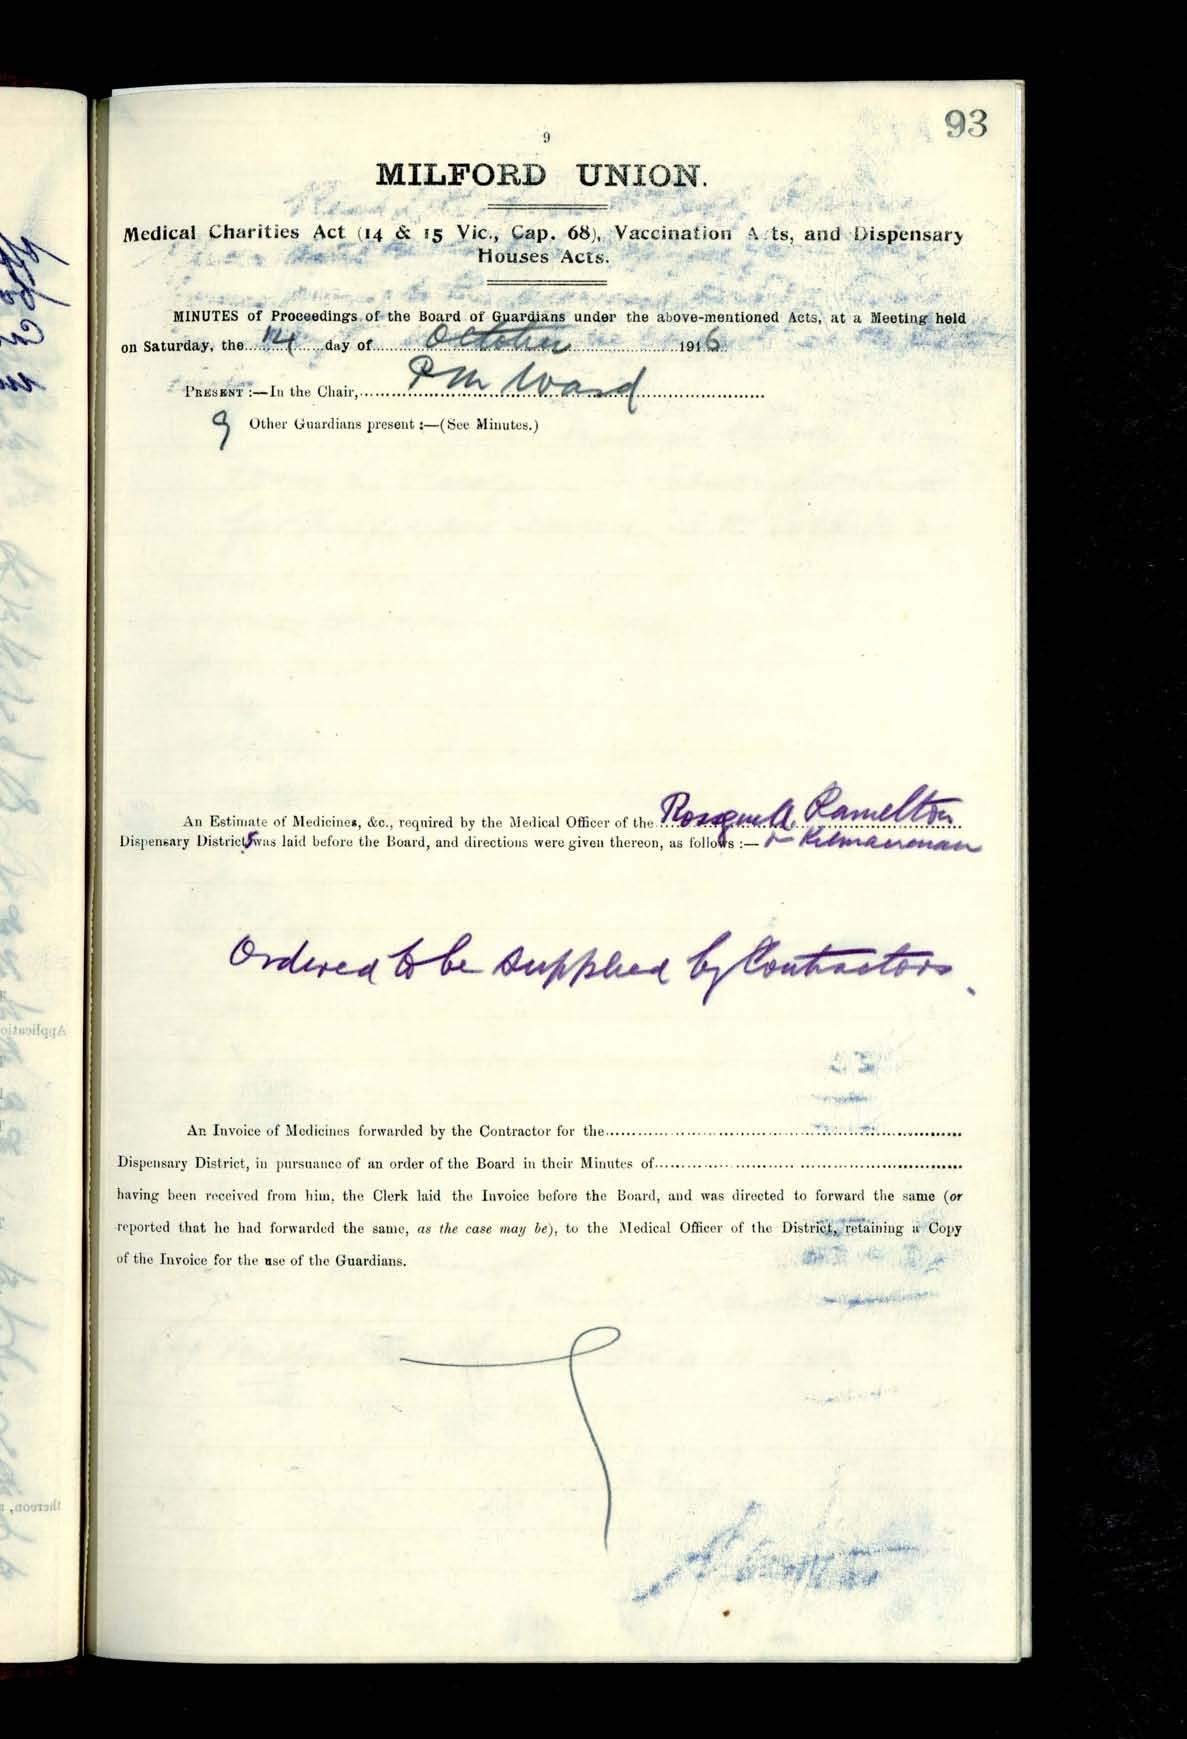 93
9
MILFORD UNION.
Medical Charities Act (14 & 15 Vic., Cap. 68), Vaccination Acts, and Dispensary
Houses Acts.
MINUTES of Proceedings of the Board of Guardians under the above-mentioned Acts, at a Meeting held
on Saturday, the 14 day of October 1916
PRESENT :—In the Chair, P M Ward
9 Other Guardians present :—(See Minutes.)
An Estimate of Medicines, &c., required by the Medical Officer of the Rosguill, Ramelton
Dispensary Districts was laid before the Board, and directions were given thereon, as follows :— & Kilmacrenan
Ordered to be supplied by Contractors.
An Invoice of Medicines forwarded by the Contractor for the
Dispensary District, in pursuance of an order of the Board in their Minutes of
having been received from him, the Clerk laid the Invoice before the Board, and was directed to forward the same (or
reported that he had forwarded the same, as the case may be), to the Medical Officer of the District, retaining a Copy
of the Invoice for the use of the Guardians.